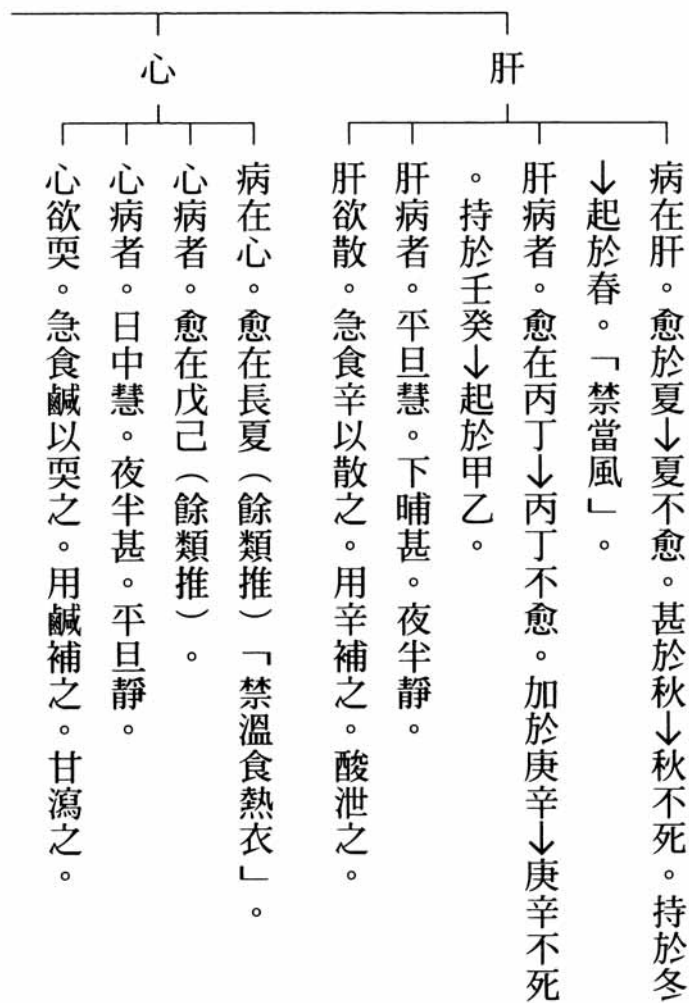 肝
病在肝。愈於夏↓夏不愈。甚於秋↓秋不死。持於冬
↓起於春。「禁當風」。
肝病者。愈在丙丁↓丙丁不愈。加於庚辛↓庚辛不死
。持於壬癸↓起於甲乙。
肝病者。平旦慧。下晡甚。夜半靜。
肝欲散。急食辛以散之。用辛補之。酸泄之。
心
病在心。愈在長夏（餘類推）「禁溫食熱衣」。
心病者。愈在戊己（餘類推）。
心病者。日中慧。夜半甚。平旦靜。
心欲耎。急食鹹以耎之。用鹹補之。甘瀉之。